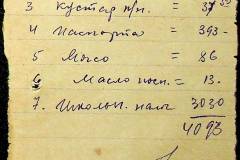 3 Кустар п/н. = 37 50
4 Паспорта = 393-
5 Мыто = 86
6 Масло посн. = 13.
7. Школьн. нал 3030
4093